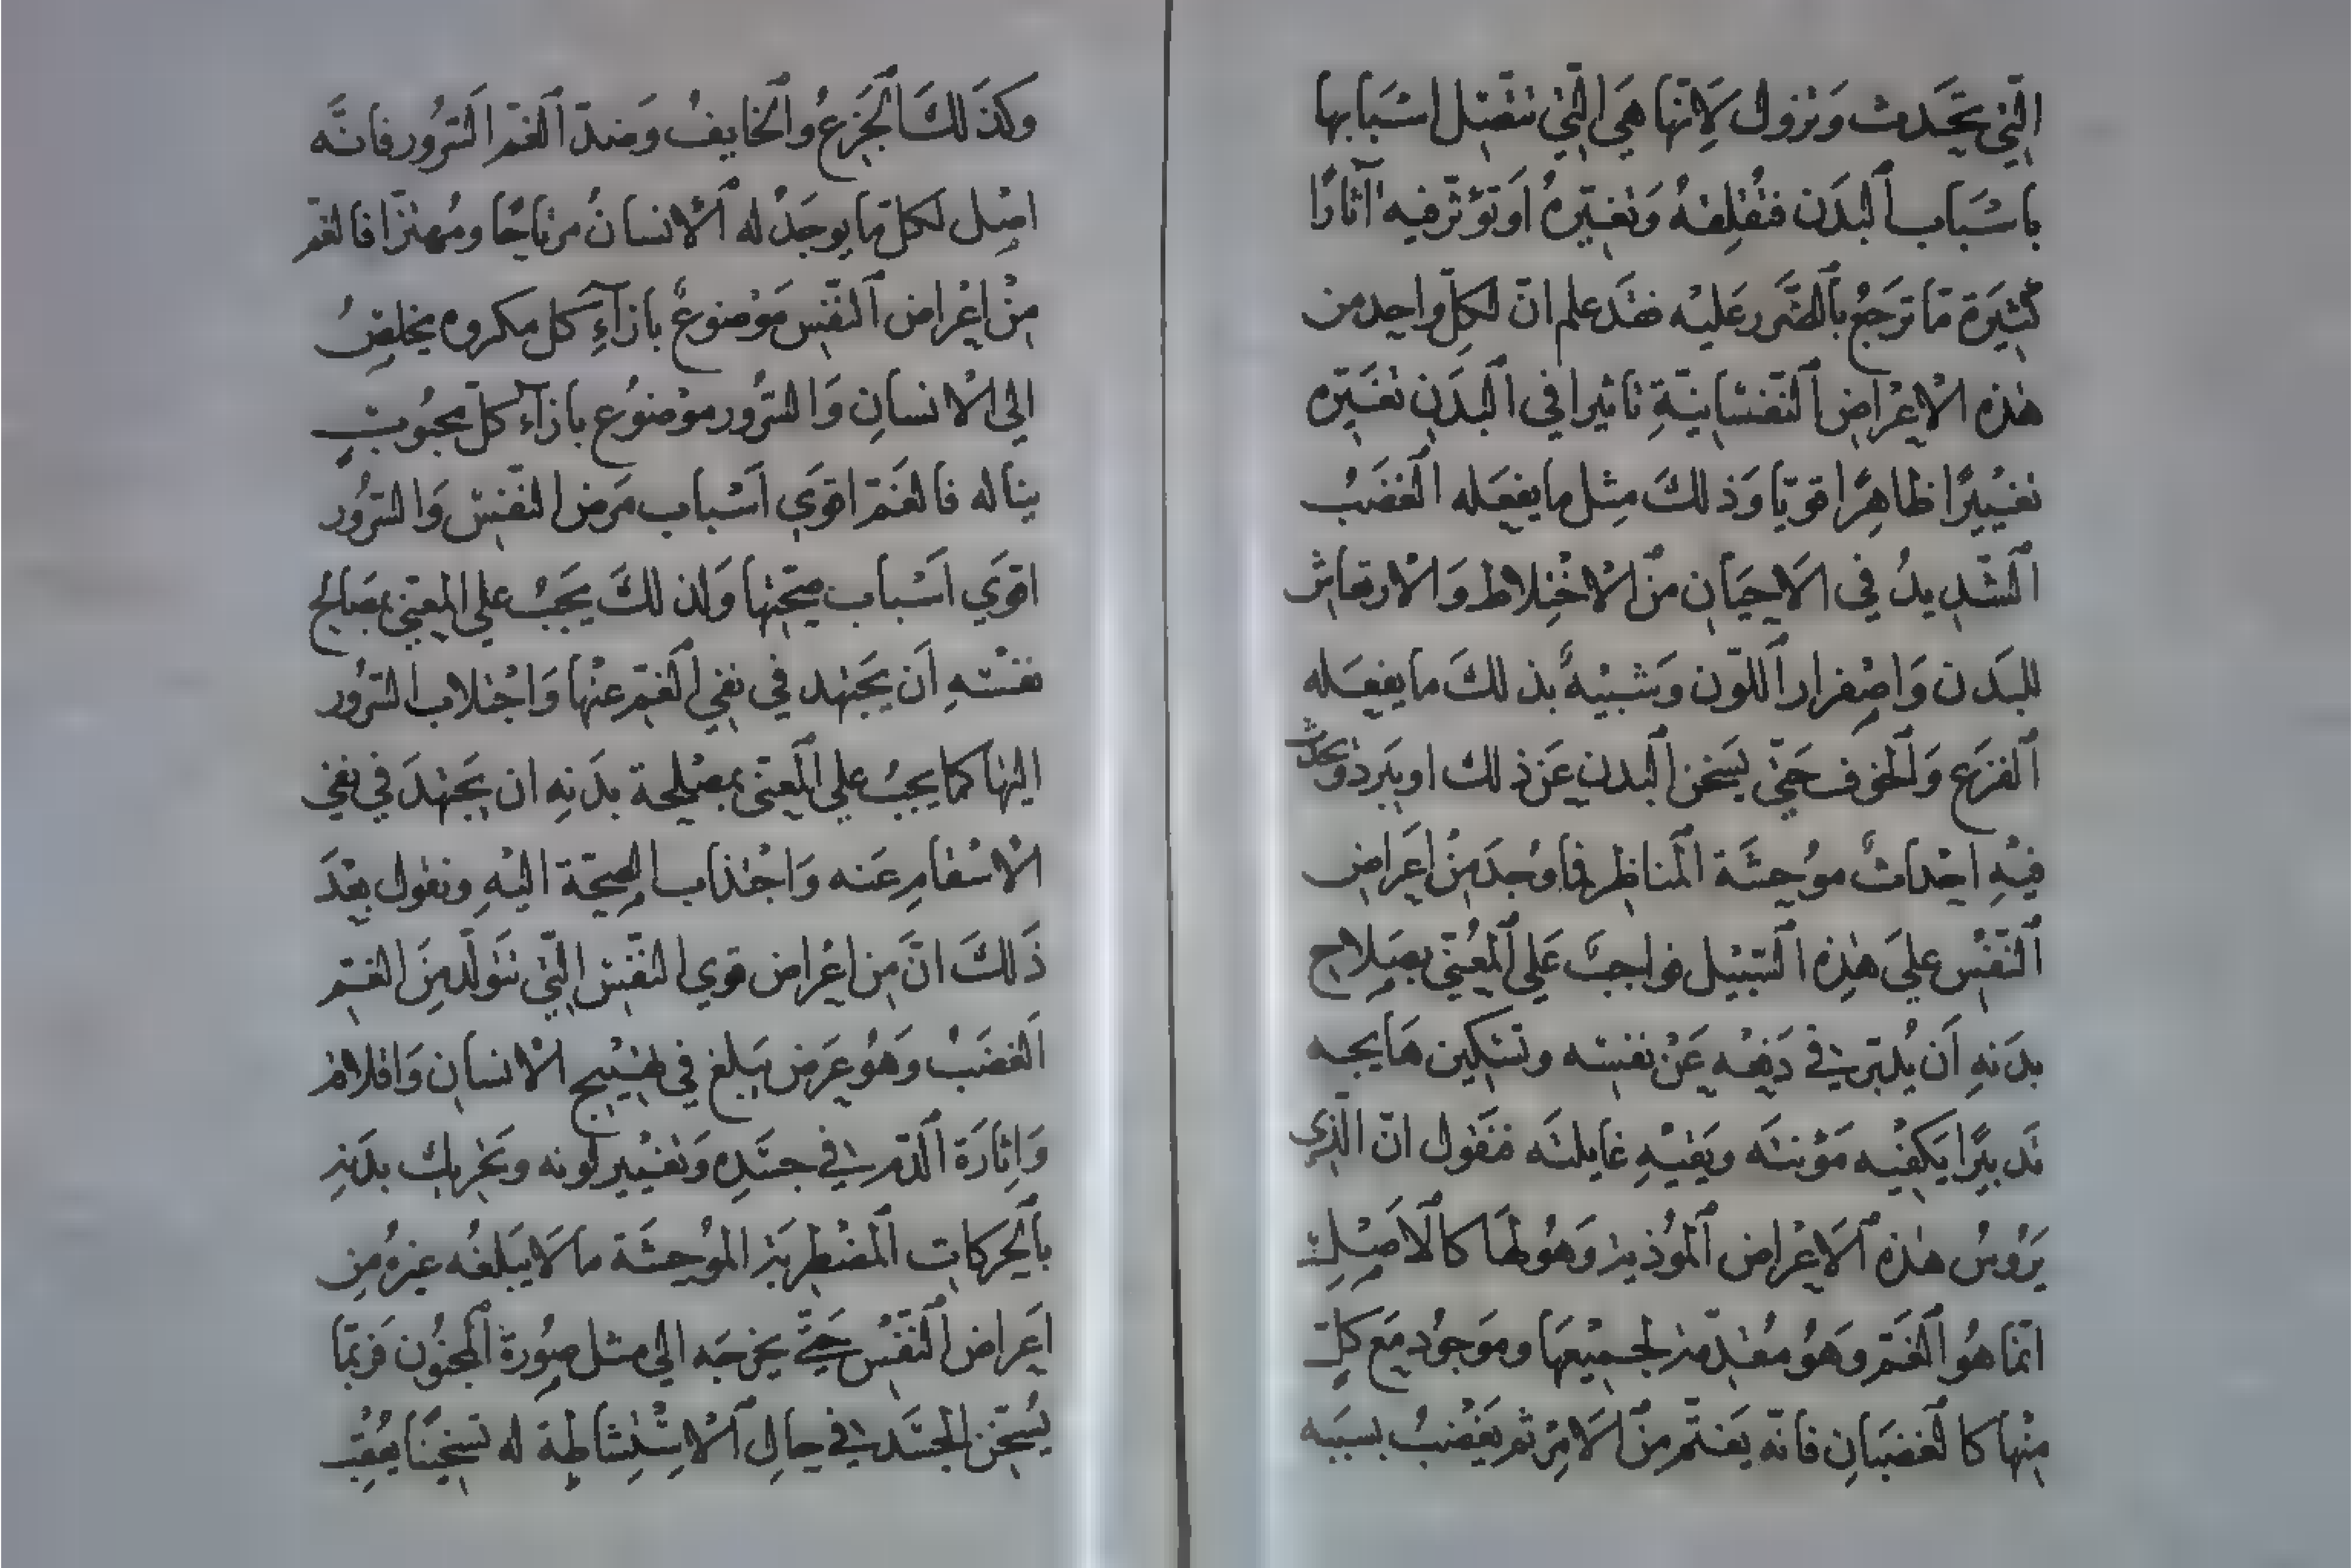 الّتي تَحَدث وَتزول لَانّها هيَ الّتي تتّصل اسْبَابها
باسْبَاب ٱلبدَن فتُقلِقهُ وَتغيّرهُ اَوتؤثّر فيه اٰثارًا
كثيَرة ممّا ترَجعُ بٱلضّرر عَليْه فقَد علم انّ لكلّ واحِد من
هٰذه الاعْرَاض ٱلنّفسَانيّةِ تاثيرا في ٱلبدَن تغَيّره
تغيْيرًا ظاهِرًا قويّا وَذلكَ مِثل ما يفعَله ٱلغضَبُ
ٱلشّديدُ في الاَحيَان منَ ٱلاخْتِلاط وَالْارتعاش
للبَدن وَاصْفرار ٱللّون وَشبيْهٌ بذلكَ ما يفعَله
ٱلفزَع وَٱلخوف حَتّي يسَخن ٱلبدن عَن ذلك او يبَرد ويحدث
فيْهِ احْداثٌ موُحشَة ٱلمناظر فما وُجدَ مِنْ اعَراض
ٱلنّفْس عليَ هٰذِه ٱلسّبيْل فواجبٌ عَلي ٱلمعُنيّ بصَلاح
بدَنهِ اَن يُدبّر في دَفعْه عَنْ نفسْه وتسْكين هَايجه
تَدبيًرا يَكفيْه مَؤنتَه ويَقيْهِ غايلتَه فنَقول انّ الّذي
يَرُوسُ هٰذه ٱلاَعْراض ٱلموُذية وَهوُ لهَا كٱلاَصْلِ
انّما هوُ ٱلغَمّ وَهوُ مُقدّمة لجميْعهَا وموَجوُد مَع كلِّ
منْها كالغضبَان فانّه يَغتّم منَ ٱلاَمْر ثم يَغْضبُ بسببَه
وكذَلكَ ٱلجَزعُ وٱلخايفُ وَضدّ ٱلغمّ السّرُور فانّه
اصْل لكلّ ما يوجَدُ له ٱلْانسانُ مرتاحًا ومُهتزّا فالغمّ
مِنْ اعْراض ٱلنّفس مَوْضوعٌ بازآءِ كل مكروه يخلصُ
الي الْانسانِ وَالسّرُور موْضوُع بازآء كلّ محبُوبٍ
يناله فالغَمّ اقوَي اَسْباب مَرض النّفسْ وَالسّرُور
اقوَي اَسْباب صحّتها وَلذلكَ يَجَبُ علي المعنيّ بمصَالح
نفسْهِ اَن يَجتهد في نفي ٱلغمّ عنْها وَاجْتلاب السّرُور
اليْها كما يجبُ علي ٱلمعنيّ بمصْلحة بدَنهِ ان يَجتهدَ في نفي
الْاسْقامِ عَنه وَاجْتذاب الصّحّة اليْهِ ونقول بعْدَ
ذَلكَ انّ مِن اعْراض قوي النّفسْ الّتي تتَولّد مِنَ الغمّ
الغضَبْ وَهوُ عَرَض يبَلغ في تهيْيج الْانسان وَاقلاقه
وَاِثارَة ٱلدّم في جسَدِه وَتغيْير لونه وتَحريك بدَنهِ
بٱلحَركات ٱلمضْطربَة الموُحشَة ما لَا يبَلغُه غيرهُ من
اعَراض ٱلنّفسْ حَتّي يخرجَه الي مثل صوُرة ٱلمجنوُن فرَبمّا
يُسّخن الجسَد في حالِ ٱلاسْتِشَاطة له تسَخينًا يعُقبُ